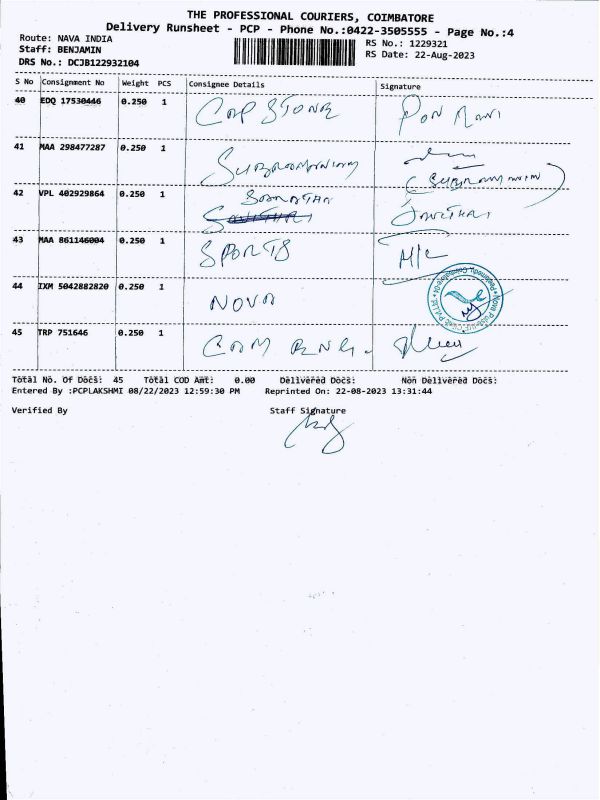 THE PROFESSIONAL COURIERS, COIMBATORE
Delivery Runsheet - PCP - Phone No.:0422-3505555 - Page No.:4
Route: NAVA INDIA
RS No.: 1229321
Staff: BENJAMIN
RS Date: 22-Aug-2023
DRS No.: DCJB122932104
S No Consignment No Weight PCS Consignee Details Signature
40 EDQ 17530446 0.250 1 CAP STONE PON MANI
41 MAA 298477287 0.250 1 SUBRAMANIAM
42 VPL 402929864 0.250 1
43 MAA 861146004 0.250 1 SPORTS M/C
44 IXM 5042882820 0.250 1 NOVA
45 TRP 751646 0.250 1
Total No. Of Docs: 45 Total COD Amt: 0.00 Delivered Docs: Non Delivered Docs:
Entered By :PCPLAKSHMI 08/22/2023 12:59:30 PM Reprinted On: 22-08-2023 13:31:44
Verified By Staff Signature